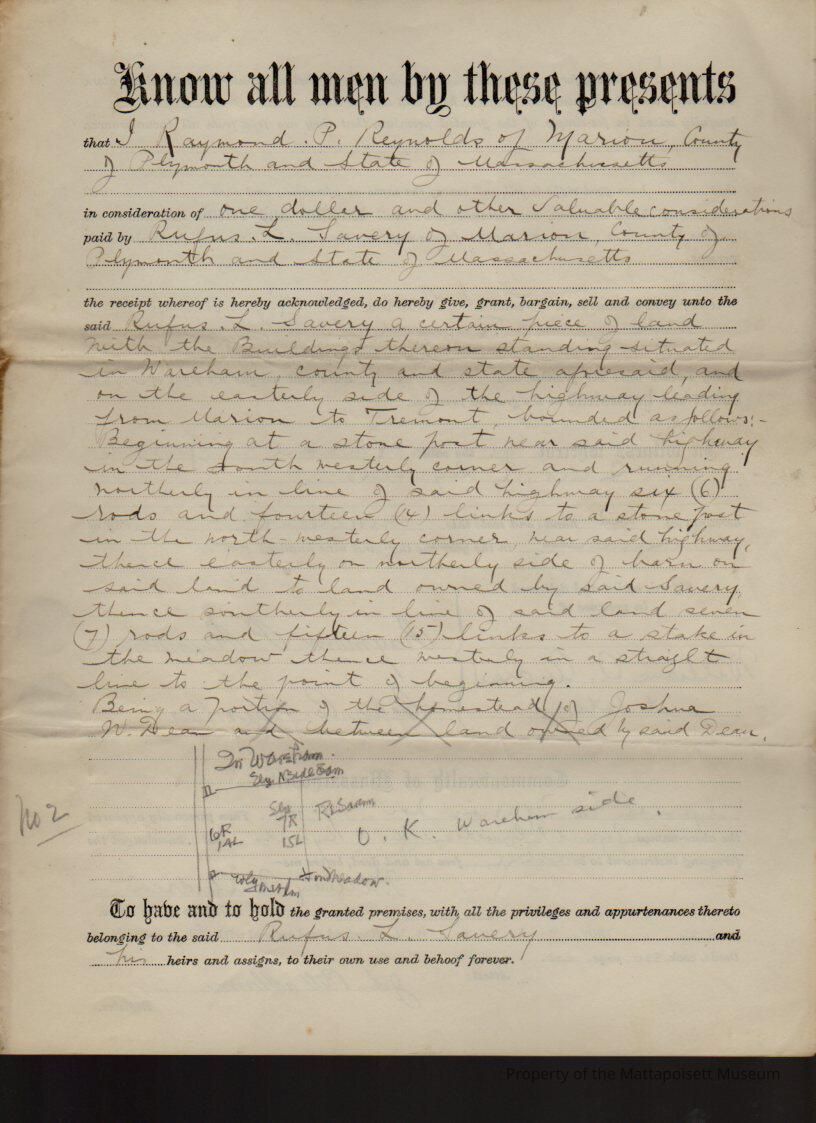 Know all men by these presents
that I Raymond. P. Reynolds of Marion, County
of Plymouth and State of Massachusetts
in consideration of one dollar and other Valuable considerations
paid by Rufus. L. Savery of Marion, County of
Plymouth and State of Massachusetts
the receipt whereof is hereby acknowledged, do hereby give, grant, bargain, sell and convey unto the
said Rufus. L. Savery a certain piece of land
with the Buildings thereon standing situated
in Wareham, county and state aforesaid, and
on the easterly side of the highway leading
from Marion to Tremont, bounded as follows:-
Beginning at a stone post near said highway
in the south westerly corner and running
northerly in line of said highway six (6)
rods and fourteen (14) links to a stone post
in the north-westerly corner, near said highway,
thence easterly on northerly side of barn on
said land to land owned by said Savery,
thence southerly in line of said land seven
(7) rods and fifteen (15) links to a stake in
the meadow thence westerly in a straight
line to the point of beginning.
Being a portion of the homestead of Joshua
W. Dean and between land owned by said Dean.
In Wareham.
Ely N Side
Sly
7R
15L
6R
14L
No 2
O. K. Wareham side.
Wly
Meadow.
To have and to hold the granted premises, with all the privileges and appurtenances thereto
belonging to the said Rufus. L. Savery and
his heirs and assigns, to their own use and behoof forever.
Property of the Mattapoisett Museum